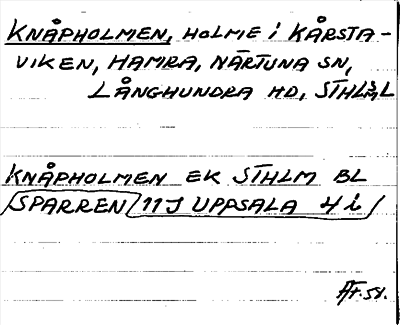 KNÅPHOLMEN, HOLME i KÅRSTA-
VIKEN, HAMRA, NÄRTUNA SN,
LÅNGHUNDRA HD, STHLM L
KNÅPHOLMEN EK STHLM BL
SPARREN 11J UPPSALA 4 i